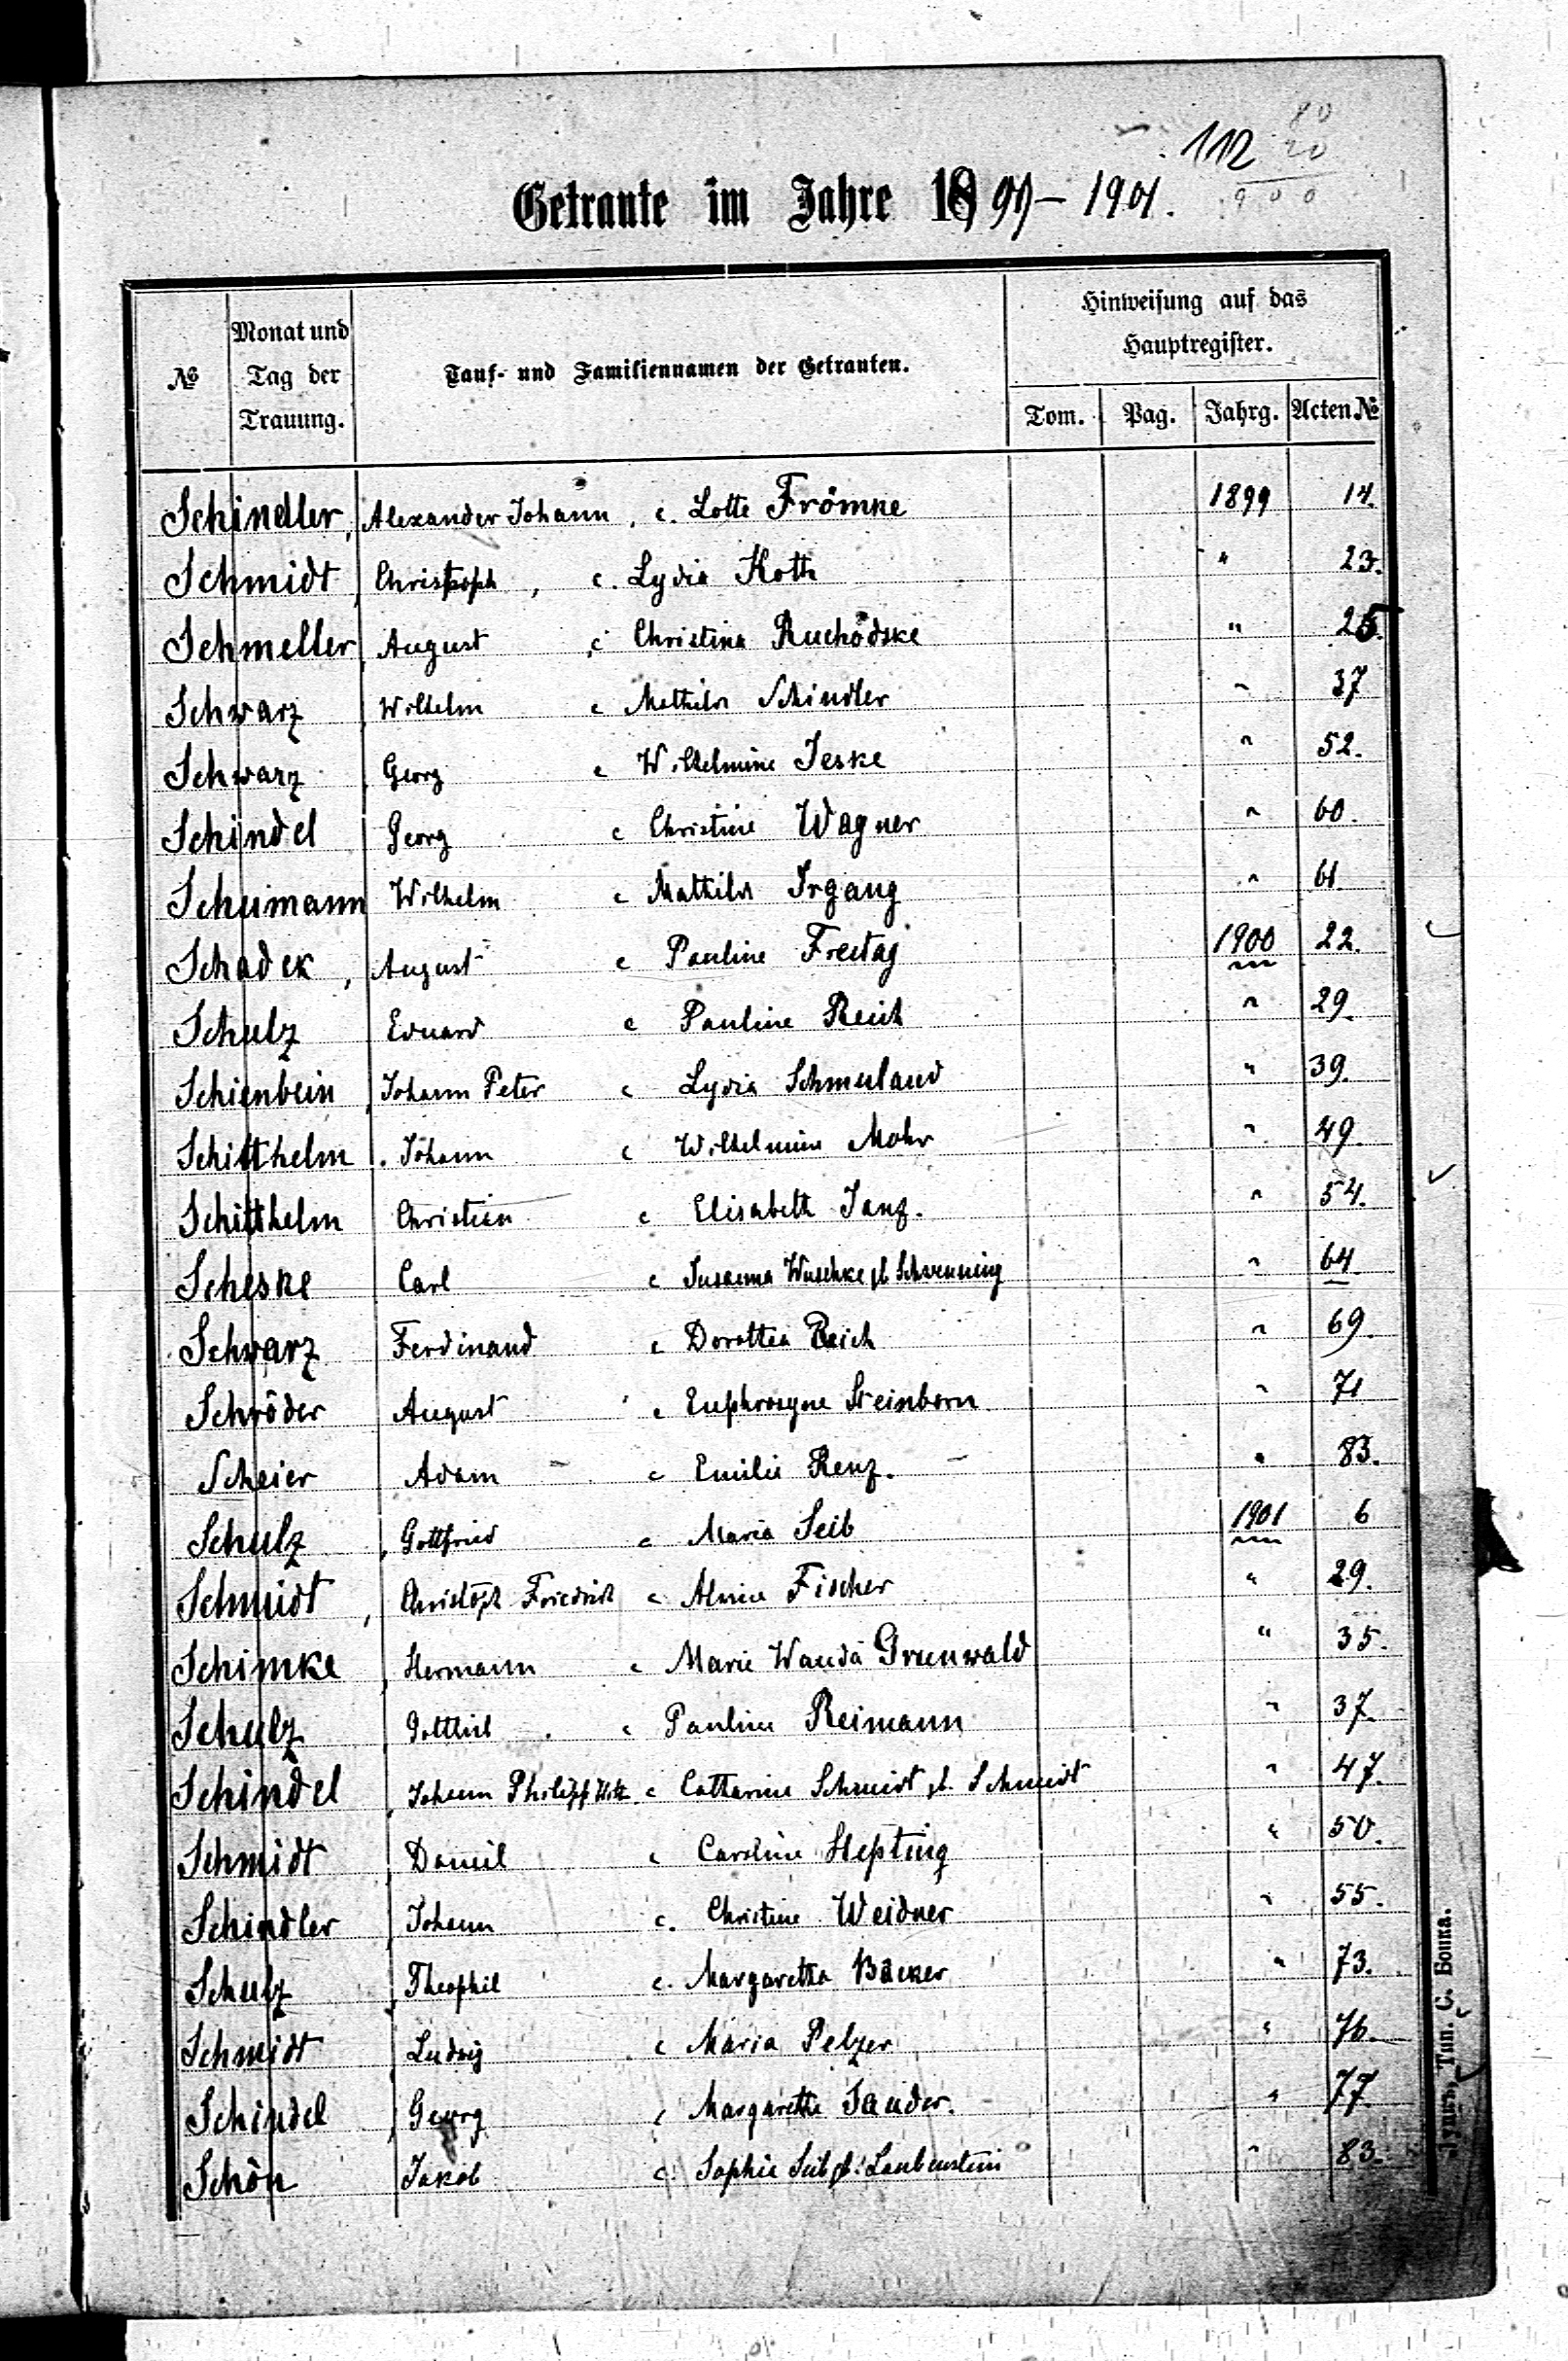 112
80
20
900
Getraute im Jahre 1899 – 1901.
№
Monat und Tag der Trauung.
Tauf- und Familiennamen der Getrauten.
Hinweisung auf das Hauptregister.
Tom. Pag. Jahrg. Acten №
Schindler, Alexander Johann, c. Lotte Frömke 1899 14.
Schmidt, Christoph, c. Lydia Koth " 23.
Schmeller, August, c Christina Ruchödske " 25.
Schwarz, Wilhelm c Mathilde Schindler " 37
Schwarz, Georg c Wilhelmine Jeske " 52.
Schindel, Georg c Christine Wagner " 60.
Schumann, Wilhelm c Mathilde Irgang " 61.
Schadek, August c Pauline Freitag 1900 22.
Schulz, Eduard c Pauline Reich " 29.
Schienbein, Johann Peter c Lydia Schmuland " 39.
Schitthelm, Johann c Wilhelmine Mohr " 49.
Schitthelm Christian c Elisabeth Janz. " 54.
Scheske Carl c Susanna Wuschke gb. Schwenning " 64
Schwarz Ferdinand c Dorothea Reich " 69.
Schröder August c Euphrosyne Steinborn " 71
Scheier Adam c Emilie Renz. " 83.
Schulz, Gottfried c Maria Seib 1901 6
Schmidt, Christoph Friedrich c Almice Fischer " 29.
Schimke, Hermann c Marie Wanda Grunwald " 35.
Schulz, Gottlieb c Pauline Reimann " 37.
Schindel, Johann Philipp c Catharine Schmidt gb. Schmidt " 47.
Schmidt, Daniel c Caroline Hepting " 50.
Schindler, Johann c. Christine Weidner " 55.
Schulz, Theophil c. Margaretha Bäcker " 73.
Schmidt, Ludwig c Maria Pelzer " 76.
Schindel, Georg c Margarethe Sauder. " 77.
Schön, Jakob c. Sophie Seib gb. Laubenstein " 83.
Луцкъ, Тип. С. Бонка.